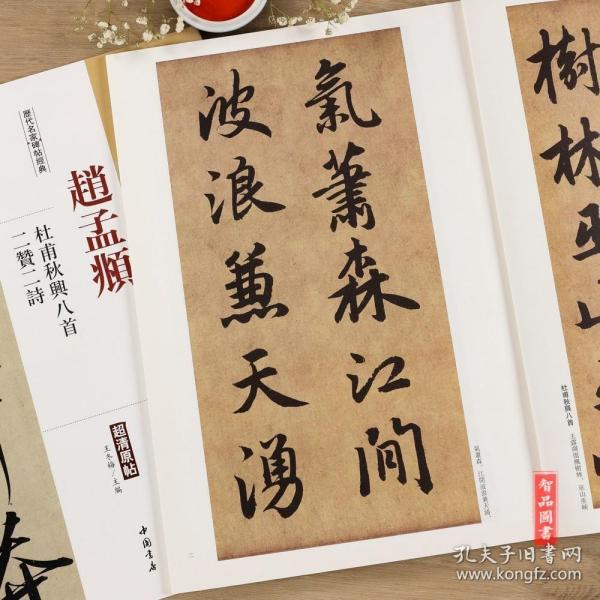 歷代名家碑帖經典
趙孟頫
杜甫秋興八首
二贊二詩
超清原帖
王冬梅／主編
中國書店
樹林巫山
氣蕭森江間
波浪蒹天湧
杜甫秋興八首
玉露凋傷楓樹林，巫山巫峽
氣蕭森，江間波浪兼天湧，
智品圖書
孔夫子旧书网
www.kongfz.com